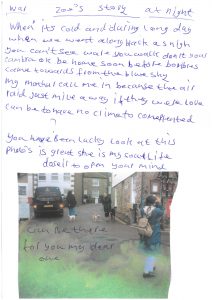 War Zoo's story at night
When it's cold and during long day
when we went along back a snigh
you can't see ware you walk don't your
can be ok be home soon before bobbies
come towards from the blue sky
My mother call me in because the air
raid just mile away if they were love
can be to have no clime to
?
you have been lucky look at this
photo's is great she is my soul life
to open your mind
Can be there
for you my dear
one